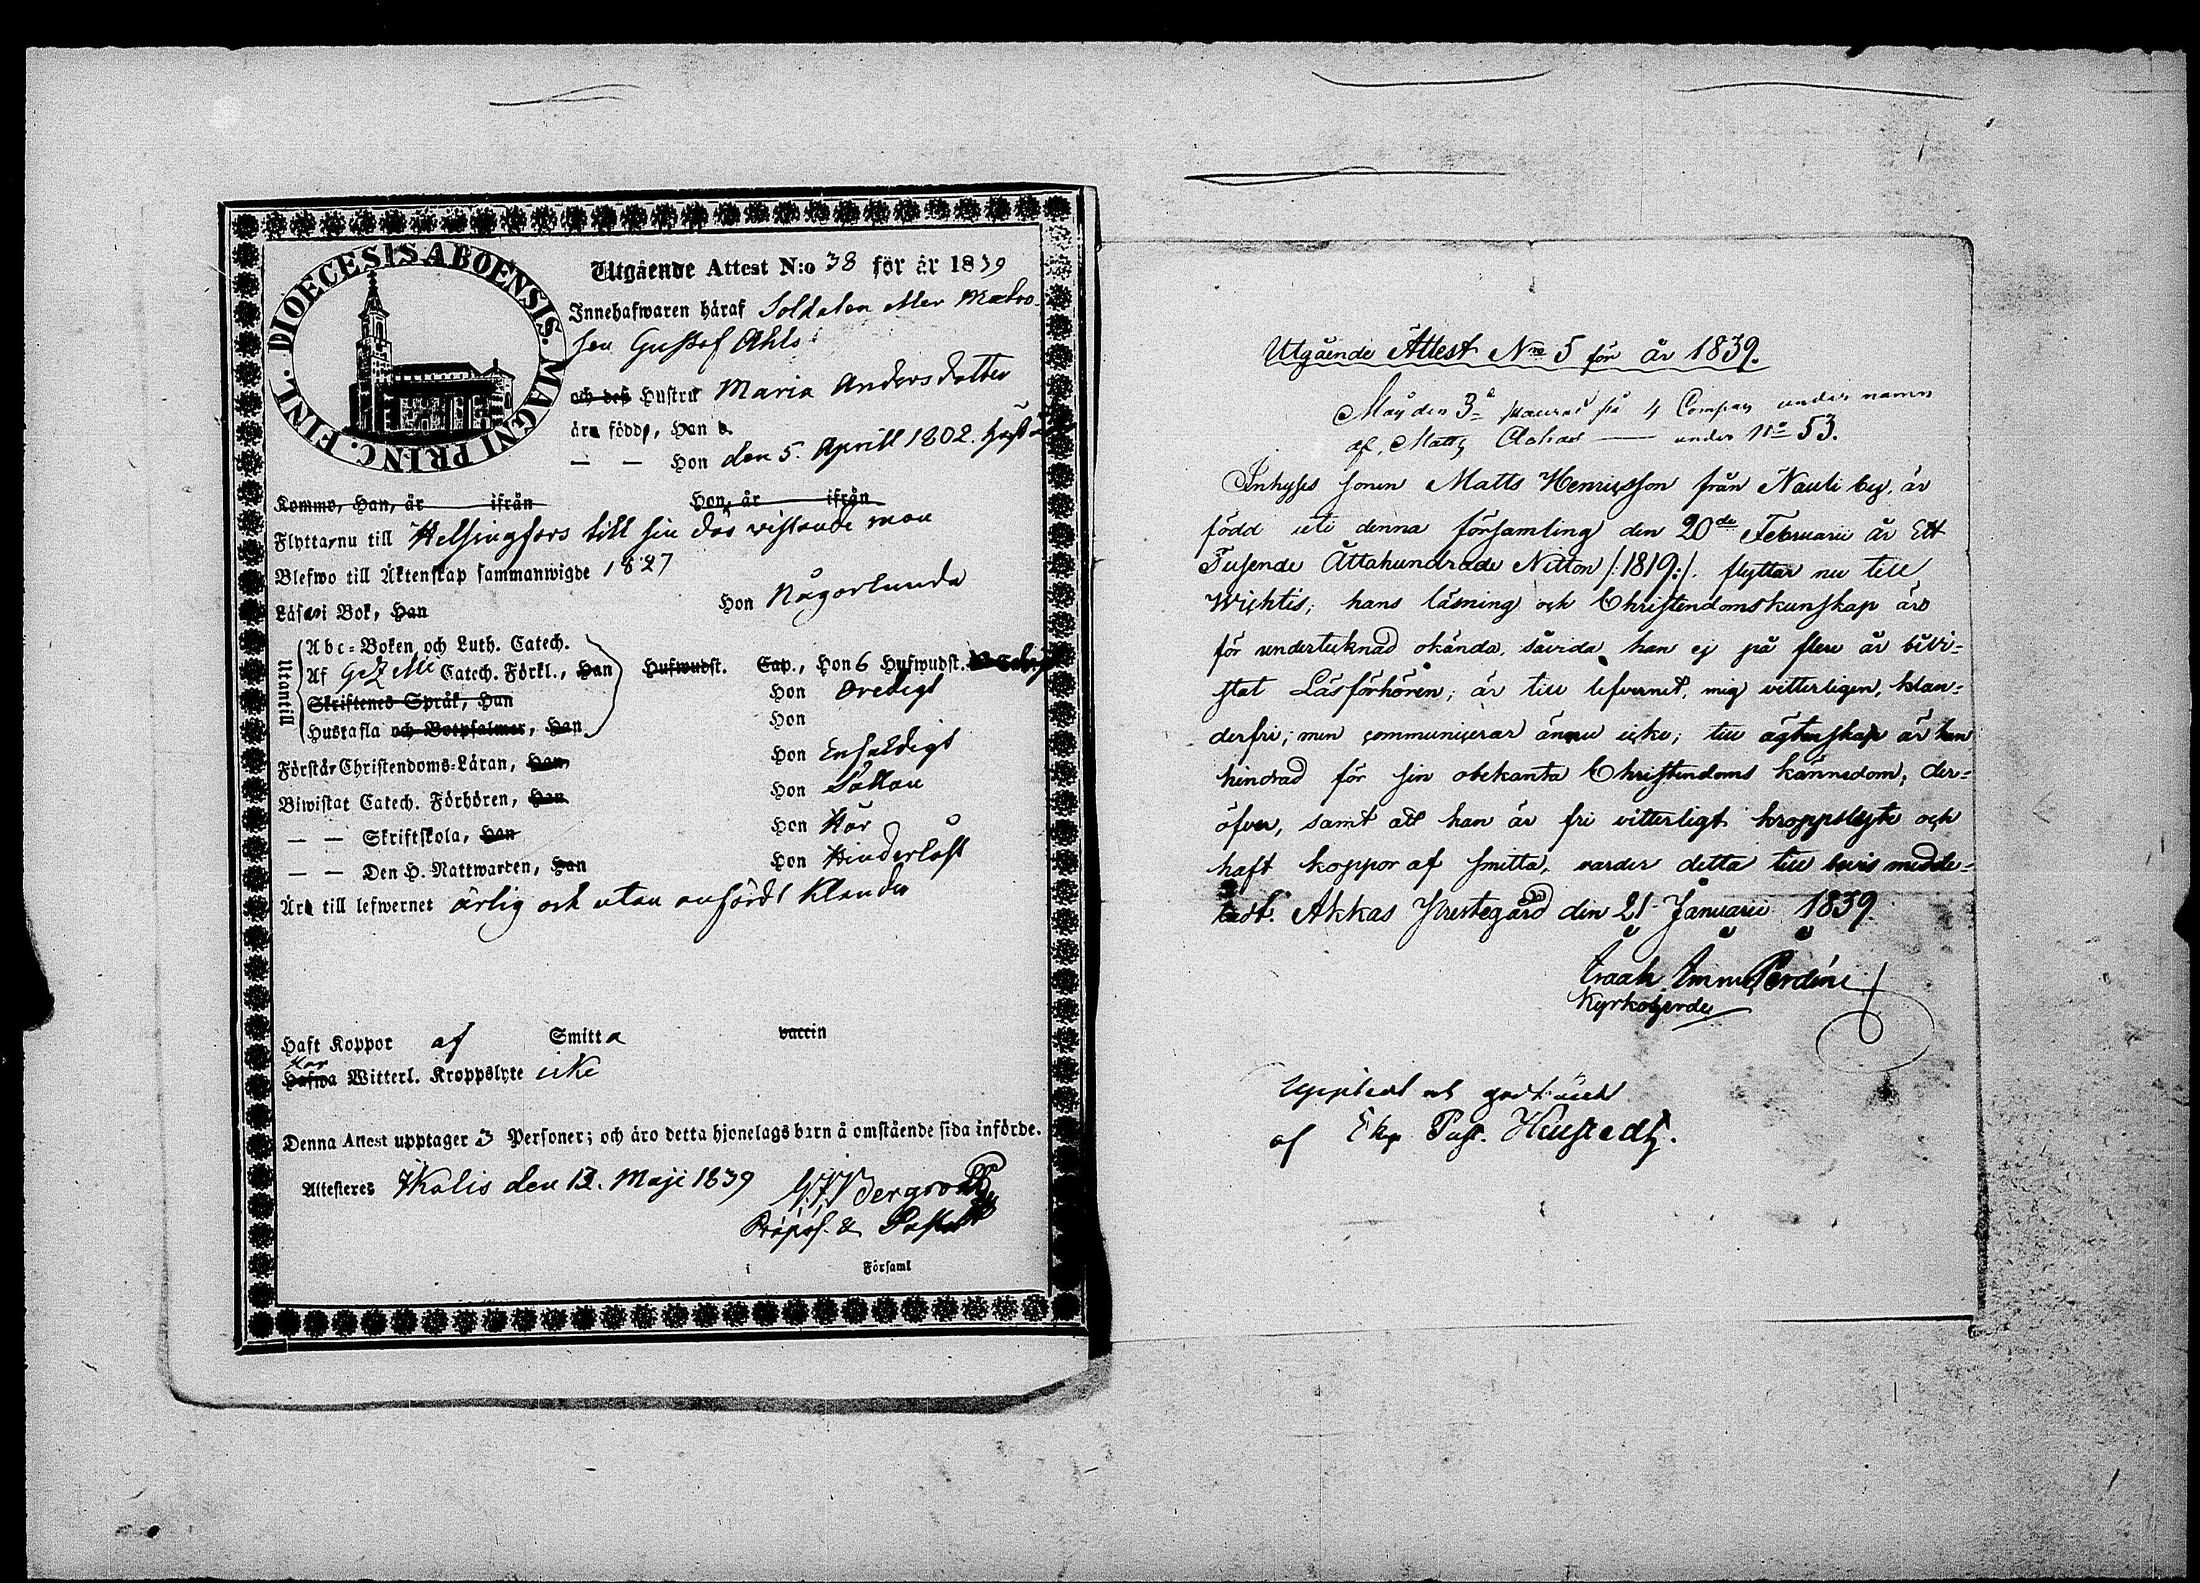 DIOECESIS ABOENSIS. MAGNI PRINC. FINL.
Utgående Attest N:o 38 för år 1839
Innehafwaren häraf Soldaten eller Matro-
sen Gustaf Ahls
och des Hustru Maria Andersdotter
äro födde, Han d.
— — Hon den 5 Aprill 1802.
Kommo, Han, år ifrån Hon, år ifrån
Flytta, nu till Helsingfors till sin där vistande man
Blefwo till Äktenskap sammanwigde 1827
Läsa i Bok, Han Hon Någorlunda
Utantill
Abc-Boken och Luth. Catech.
Af Catech. Förkl., Han Hufwudst. Cap., Hon 6 Hufwudst.
Skriftenes Språk, Han Hon Oredigt
Hustafla och Botpsalmer, Han Hon
Förstår Christendoms-Läran, Han Hon Enfaldigt
Biwistat Catech. Förhören, Han Hon Sällan
— — Skriftskola, Han Hon Här
— — Den H. Nattwarden, Han Hon Hinderlöst
Äro till lefwernet ärlig och utan anfördt klander
Haft Koppor af Smitta vaccin
Har
Hafwa Witterl. Kroppslyte icke
Denna Attest upptager 3 Personer; och äro detta hjonelags barn å omstående sida införde.
Attesteres Ikalis den 12. Maji 1839
Bergroth
Prost &
i Församl
Utgående Attest No 5 för år 1839.
May den 3e på 4 Compani under namn
af Matts under No 53.
Inhyses sonen Matts Henricsson från Nauli by, är
född uti denna församling den 20de Februarii år Ett
Tusende Åttahundrade Nitton /:1819:/. flyttar nu till
Wichtis; hans läsning och Christendomskunskap äro
för undertecknad okända, såvida han ej på flere år bivi-
stat Läsförhören; är till lefvernet, mig vitterligen, klan-
derfri; men communicerar ännu icke; till ägtenskap är han
hindrad för sin obekanta Christendoms kännedom; der-
öfver, samt att han är fri vitterligt kroppslyte och
haft koppor af smitta, varder detta till bevis medde-
ladt. Akkas Prestegård den 21 Januarii 1839.
Kyrkoherde
Uppläst och godkändt
af Past.